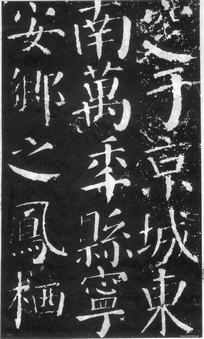 窆于京城東
南萬年縣寧
安鄉之鳳栖